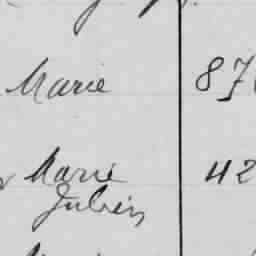 Marie 87
Marie 42
Julien